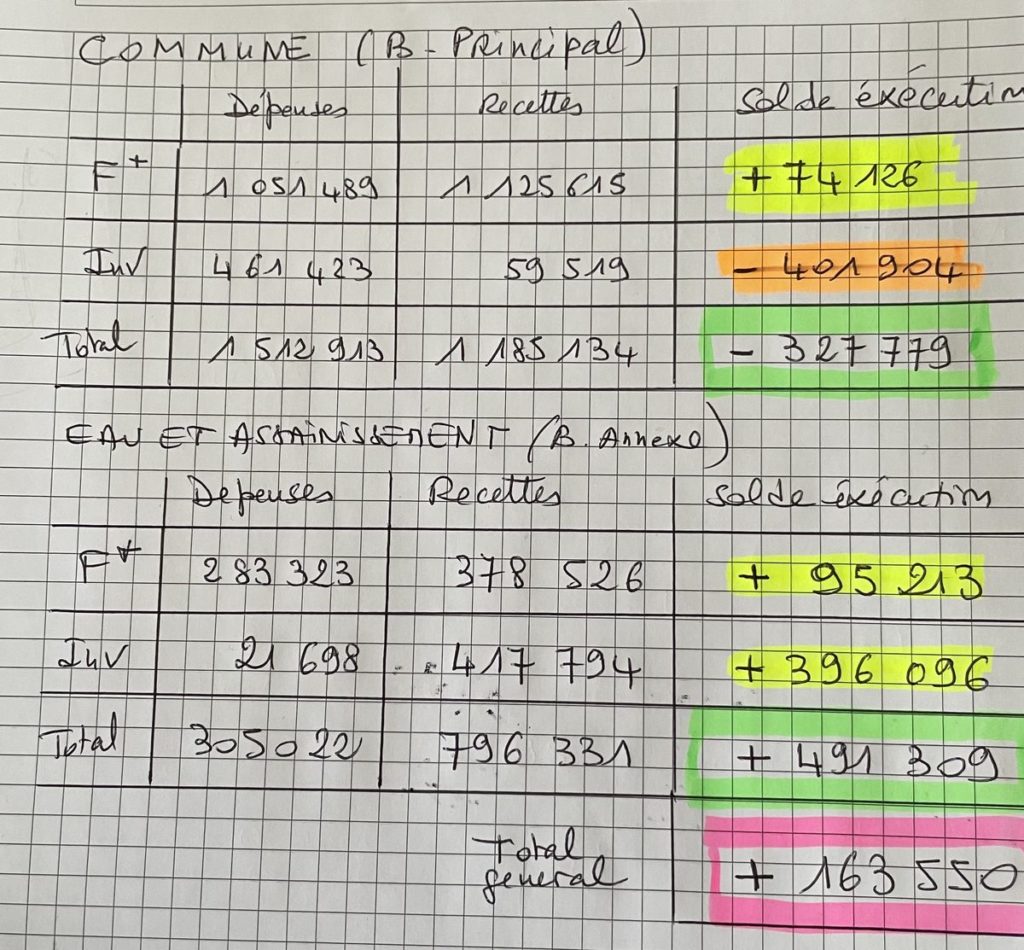 COMMUNE (B - Principal)
Dépenses Recettes Solde éxécution
F+ 1 051 489 1 125 615 + 74 126
Inv 461 423 59 519 - 401 904
Total 1 512 913 1 185 134 - 327 779
EAU ET ASSAINISSEMENT (B. Annexe)
Depenses Recettes Solde éxécution
F+ 283 323 378 526 + 95 213
Inv 21 698 417 794 + 396 096
Total 305 022 796 331 + 491 309
Total
general + 163 550